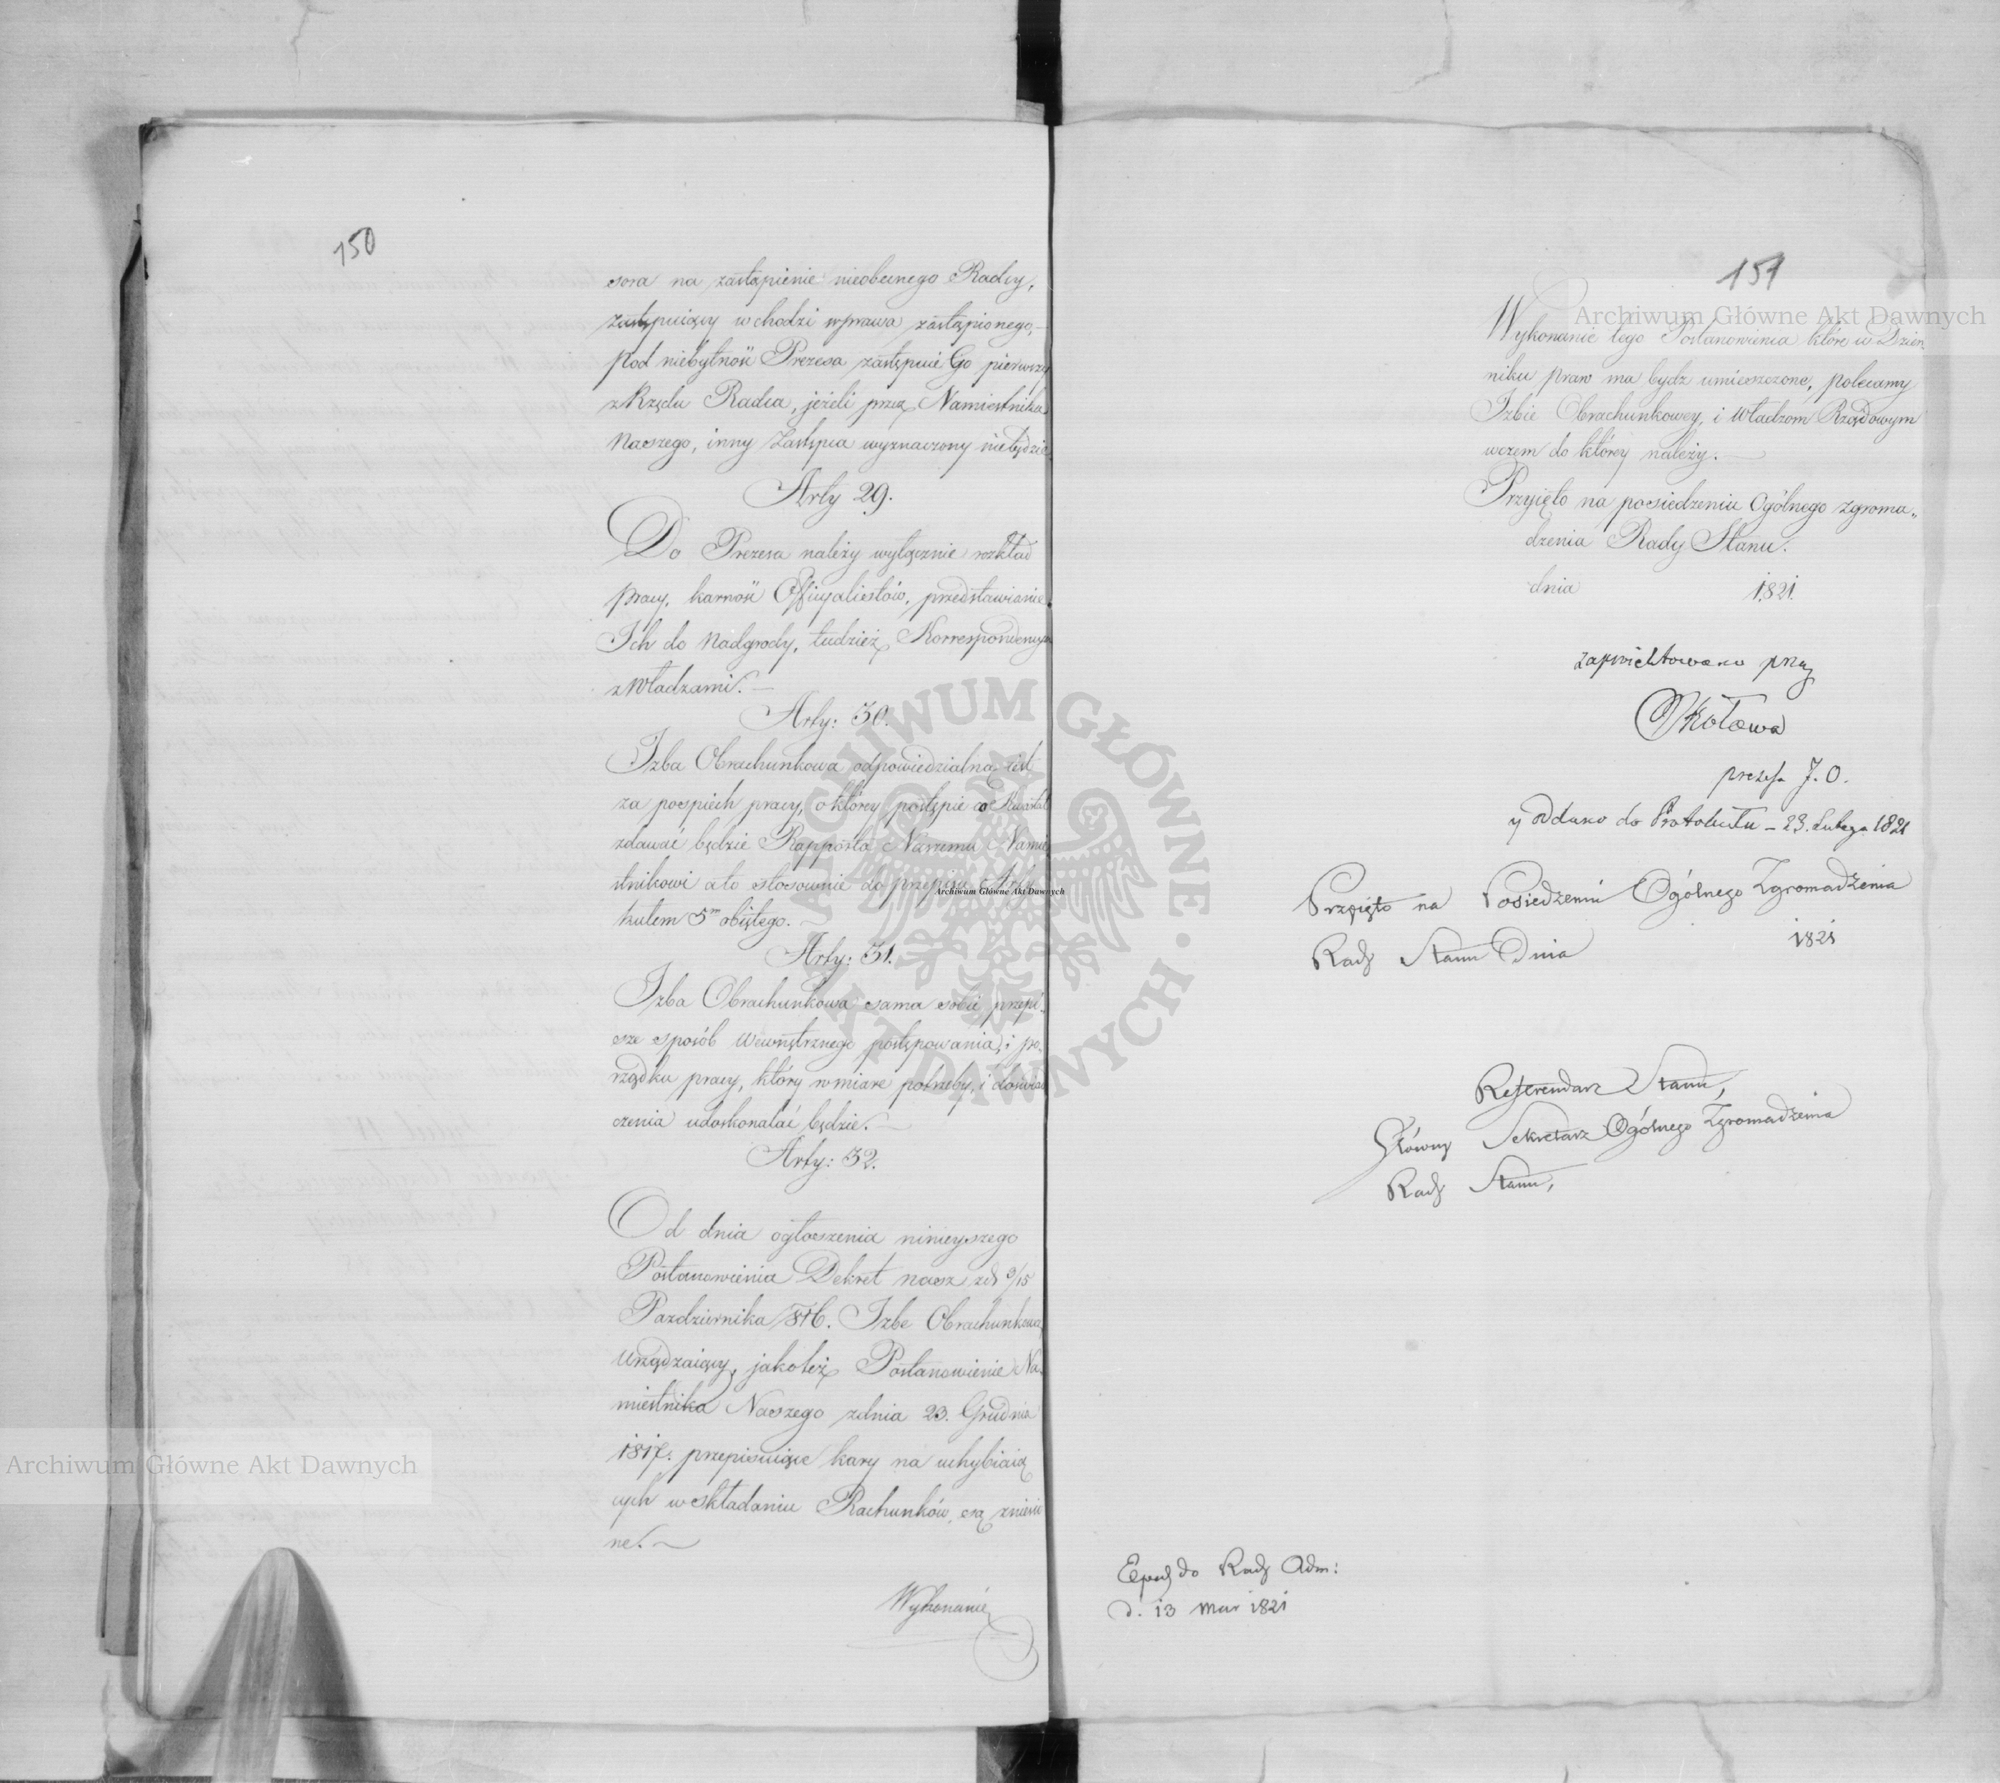 150
sora na zastąpienie nieobecnego Radcy,
zastępuiący wchodzi w prawa zastąpionego,—
pod niebytność Prezesa zastępuie Go pierwszy
z Rzędu Radca, jeżeli przez Namiestnika
Naszego, inny Zastępca wyznaczony niebędzie
Arty 29.
Do Prezesa należy wyłącznie rozkład
pracy, karność Officyalistów, przedstawianie
Ich do Nadgrody, tudzież Korrespondencya
z Władzami.—
Arty: 30.
Izba Obrachunkowa odpowiedzialną iest
za pospiech pracy, o którey postępie co Kwartał
zdawać będzie Rapporta Naszemu Namie
stnikowi a to stosownie do przepisu Arty
kułem 5m obiętego.—
Arty: 31.
Izba Obrachunkowa sama sobie przepi„
sze sposób wewnętrznego postępowania, i po„
rządku pracy, który w miarę potrzeby, i doświad
czenia udoskonalać będzie.—
Arty: 32.
Od dnia ogłoszenia ninieyszego
Postanowienia Dekret nasz zd 3/15
Pazdziernika 816. Izbe Obrachunkową
Urządzaiący, jakoteż Postanowienie Na„
miestnika Naszego zdnia 23. Grudnia
1817. przepisuiące kary na uchybiaią
cych w składaniu Rachunków, są znies
ne.—
Wykonanie
151
Wykonanie tego Postanowienia które w Dzien„
niku praw ma bydz umieszczone, polecamy
Izbie Obrachunkowey, i Władzom Rządowym
wczem do którey należy.—
Przyięto na posiedzeniu Ogólnego zgroma„
dzenia Rady Stanu.
dnia 1821.
zaproiektowano przez
prezesa J. O.
y oddano do Protokułu — 23. Lutego 1821
Przyięto na Posiedzeniu Ogólnego Zgromadzenia
Rady Stanu Dnia 1821
Referendarz Stanu,
Główny Sekretarz Ogólnego Zgromadzenia
Rady Stanu,
Exped do Rady Adm:
d. 13 Mar 1821
Archiwum Główne Akt Dawnych
Archiwum Główne Akt Dawnych
Archiwum Główne Akt Dawnych
ARCHIWUM GŁÓWNE • AKT DAWNYCH •